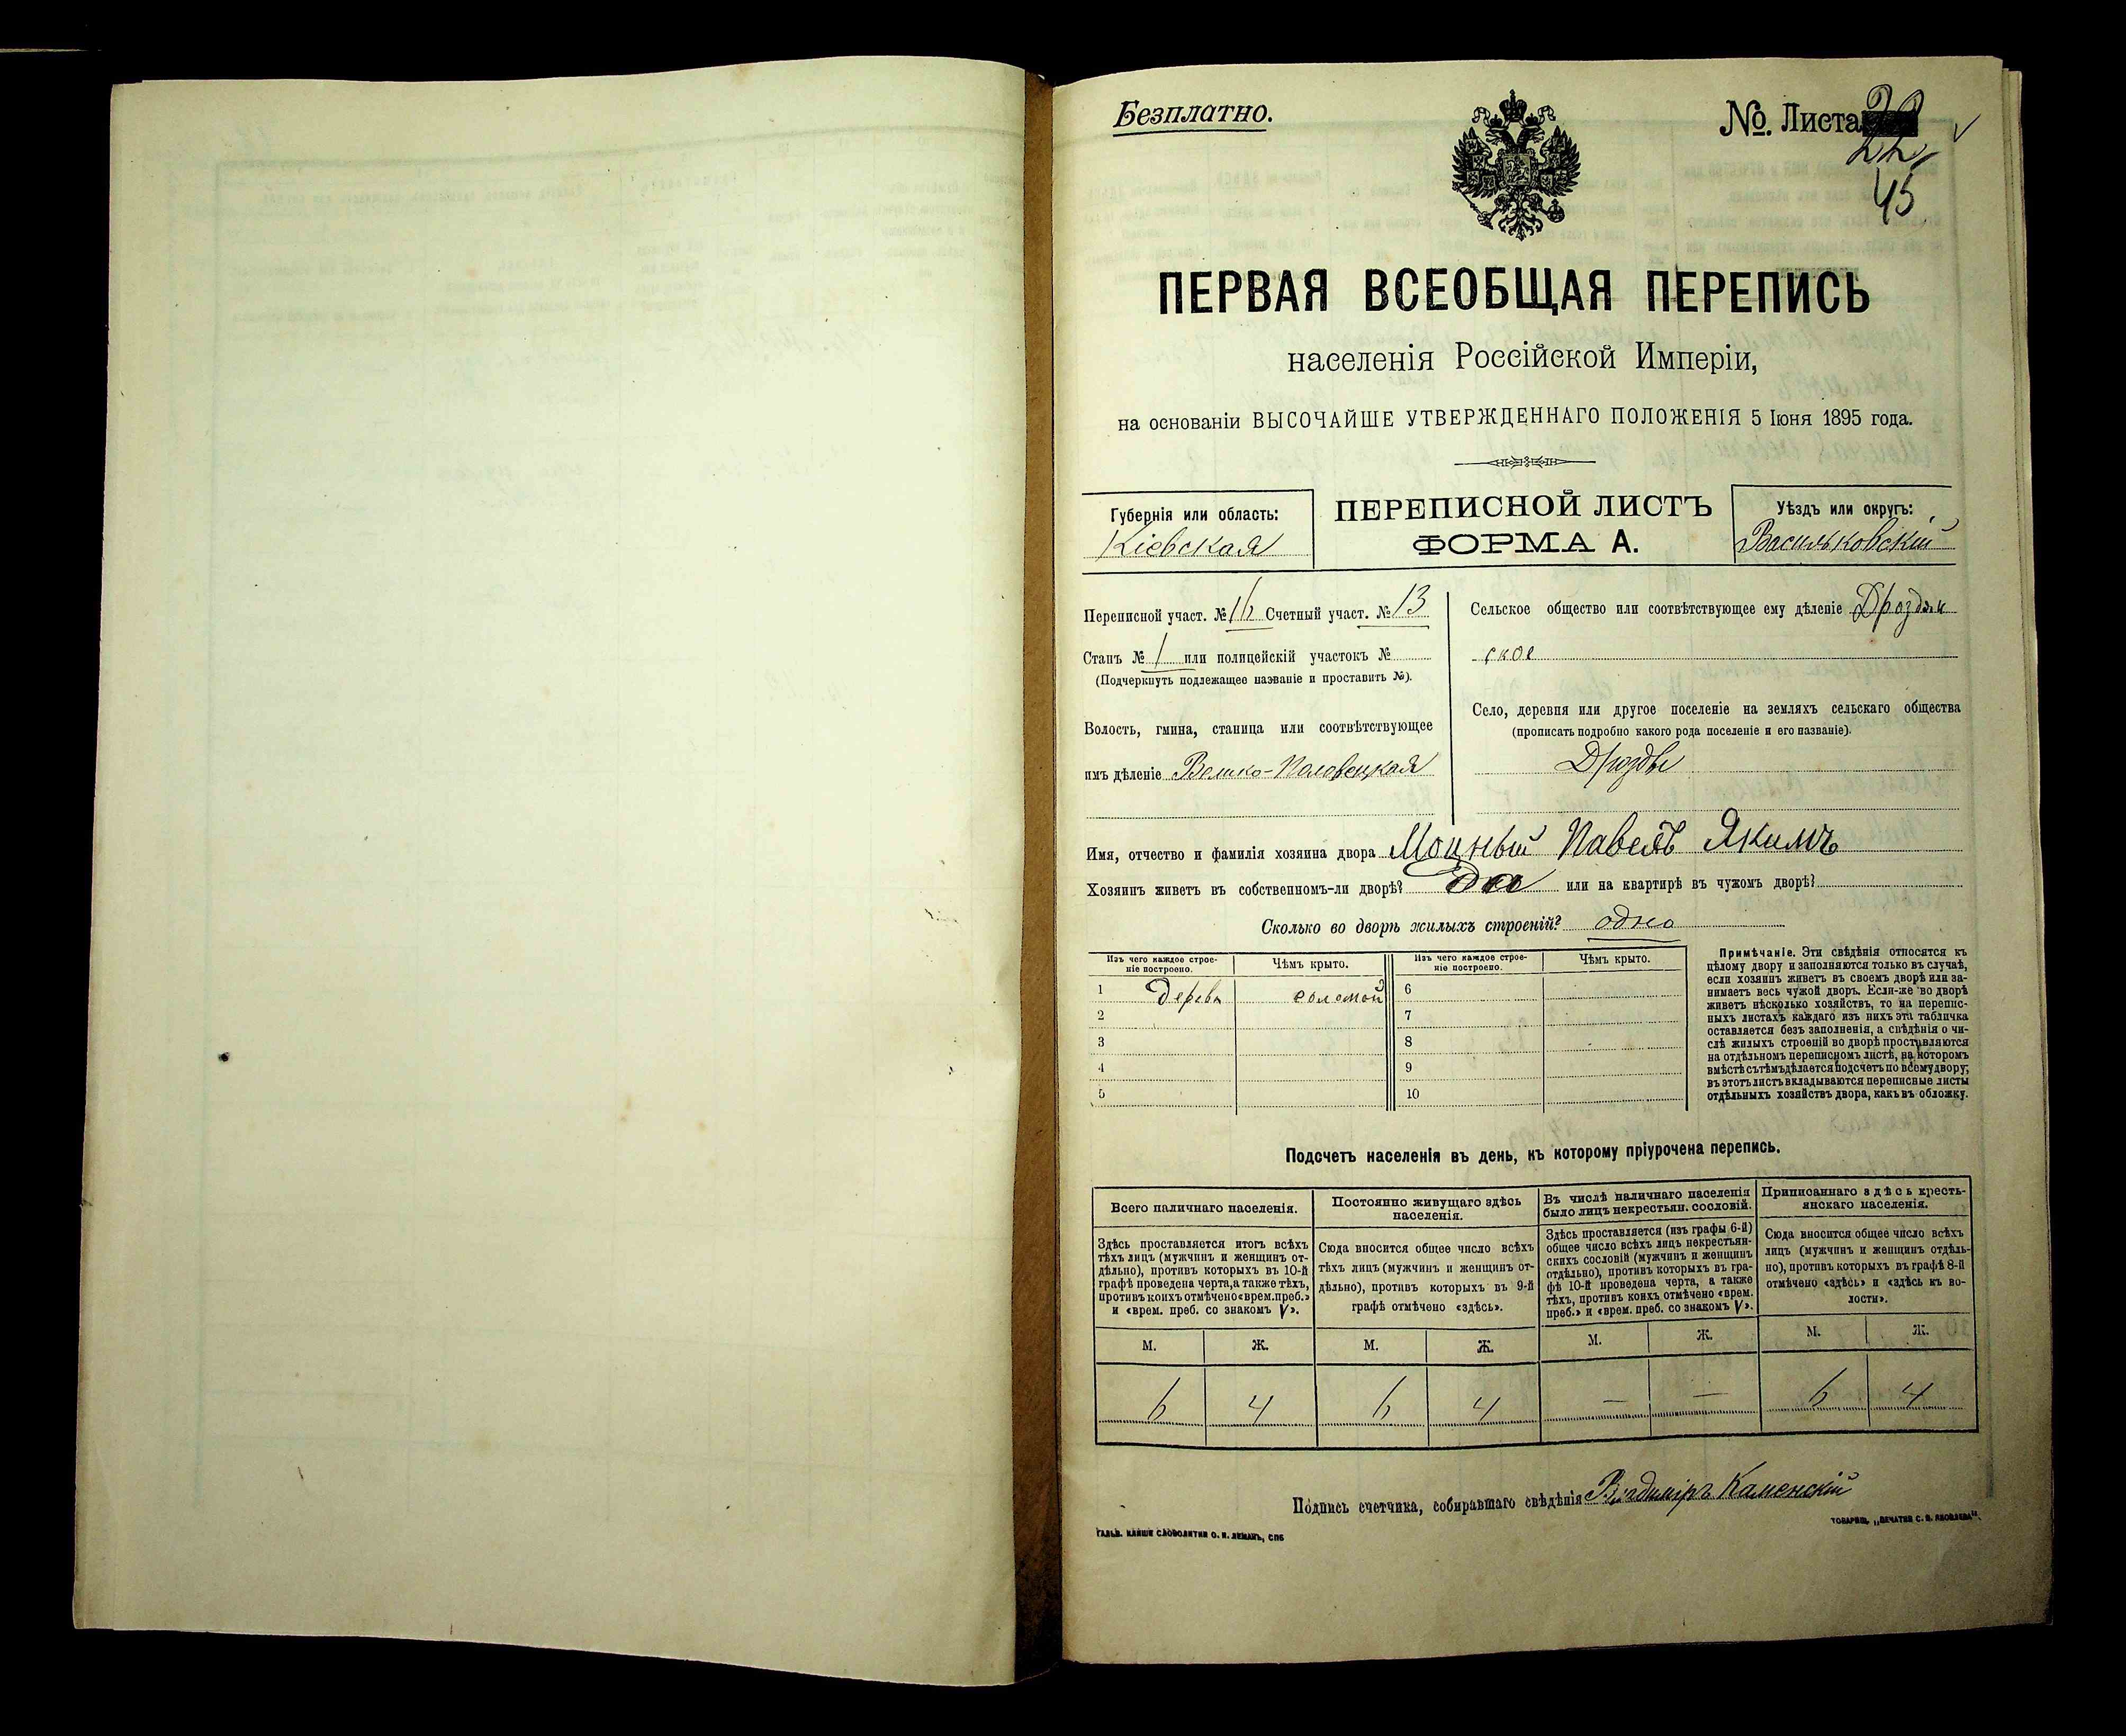 Безплатно.
№. Листа
22
45
ПЕРВАЯ ВСЕОБЩАЯ ПЕРЕПИСЬ
населенія Россійской Имперіи,
на основаніи ВЫСОЧАЙШЕ УТВЕРЖДЕННАГО ПОЛОЖЕНІЯ 5 Іюня 1895 года.
Губернія или область:
Кіевская
ПЕРЕПИСНОЙ ЛИСТЪ
ФОРМА А.
Уѣздъ или округъ:
Васильковскій
Переписной участ. № 16 Счетный участ. № 13
Станъ № 1 или полицейскій участокъ №
(Подчеркнуть подлежащее названіе и проставить №).
Волость, гмина, станица или соотвѣтствующее
имъ дѣленіе Велико-Половецкая
Сельское общество или соотвѣтствующее ему дѣленіе Дроздян
ское
Село, деревня или другое поселеніе на земляхъ сельскаго общества
(прописать подробно какого рода поселеніе и его названіе).
Дрозды
Имя, отчество и фамилія хозяина двора Моцный Павелъ Якимъ
Хозяинъ живетъ въ собственномъ-ли дворѣ? Да или на квартирѣ въ чужомъ дворѣ?
Сколько во дворѣ жилыхъ строеній? одно
Изъ чего каждое строе-
ніе построено.
Чѣмъ крыто.
Изъ чего каждое строе-
ніе построено.
Чѣмъ крыто.
1 Дерева соломой 6
2 7
3 8
4 9
5 10
Примѣчаніе. Эти свѣдѣнія относятся къ
цѣлому двору и заполняются только въ случаѣ,
если хозяинъ живетъ въ своемъ дворѣ или за-
нимаетъ весь чужой дворъ. Если-же во дворѣ
живетъ нѣсколько хозяйствъ, то на перепис-
ныхъ листахъ каждаго изъ нихъ эта табличка
оставляется безъ заполненія, а свѣдѣнія о чи-
слѣ жилыхъ строеній во дворѣ проставляются
на отдѣльномъ переписномъ листѣ, на которомъ
вмѣстѣ съ тѣмъ дѣлается подсчетъ по всему двору;
въ этотъ листъ вкладываются переписные листы
отдѣльныхъ хозяйствъ двора, какъ въ обложку.
Подсчетъ населенія въ день, къ которому пріурочена перепись.
Всего наличнаго населенія.
Здѣсь проставляется итогъ всѣхъ
тѣхъ лицъ (мужчинъ и женщинъ от-
дѣльно), противъ которыхъ въ 10-й
графѣ проведена черта, а также тѣхъ,
противъ коихъ отмѣчено «врем. преб.»
и «врем. преб. со знакомъ V».
Постоянно живущаго здѣсь
населенія.
Сюда вносится общее число всѣхъ
тѣхъ лицъ (мужчинъ и женщинъ от-
дѣльно), противъ которыхъ въ 9-й
графѣ отмѣчено «здѣсь».
Въ числѣ наличнаго населенія
было лицъ некрестьян. сословій.
Здѣсь проставляется (изъ графы 6-й)
общее число всѣхъ лицъ некрестьян-
скихъ сословій (мужчинъ и женщинъ
отдѣльно), противъ которыхъ въ гра-
фѣ 10-й проведена черта, а также
тѣхъ, противъ коихъ отмѣчено «врем.
преб.» и «врем. преб. со знакомъ V».
Приписаннаго здѣсь кресть-
янскаго населенія.
Сюда вносится общее число всѣхъ
лицъ (мужчинъ и женщинъ отдѣль-
но), противъ которыхъ въ графѣ 8-й
отмѣчено «здѣсь» и «здѣсь къ во-
лости».
М. Ж. М. Ж. М. Ж. М. Ж.
6 4 6 4 — — 6 4
Подпись счетчика, собиравшаго свѣдѣнія Владиміръ Каменскій
ГАЛЬВ. КЛИШЕ СЛОВОЛИТНИ О. И. ЛЕМАНЪ, СПБ
ТОВАРИЩ. „ПЕЧАТНЯ С. П. ЯКОВЛЕВА“.